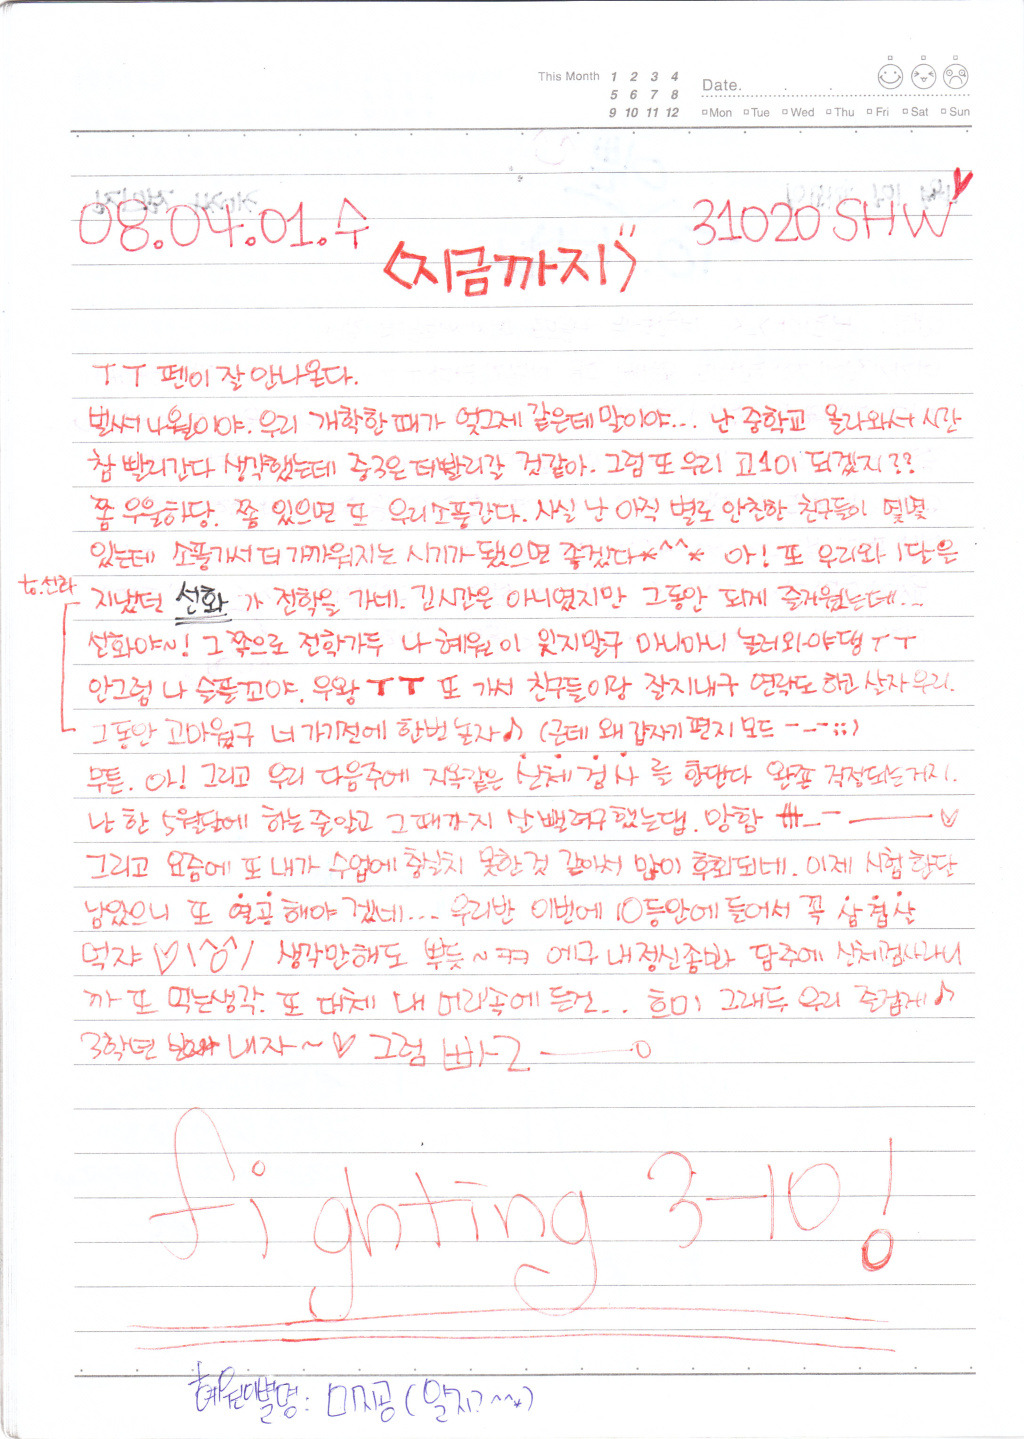 This Month 1 2 3 4
5 6 7 8
9 10 11 12
Date. . .
Mon Tue Wed Thu Fri Sat Sun
08.04.01.수
31020 SHW
<지금까지>
ㅜㅜ 펜이 잘 안나온다.
벌써 4월이야. 우리 개학한 때가 엊그제 같은데 말이야... 난 중학교 올라와서 시간
참 빨리간다 생각했는데 중3은 더빨리갈 것같아. 그럼 또 우리 고1이 되겠지??
쫌 우울하당. 쫌 있으면 또 우리소풍간다. 사실 난 아직 별로 안친한 친구들이 몇몇
있는데 소풍가서 더 가까워지는 시기가 됐으면 좋겠다*^^* 아! 또 우리와 1달은
to.선화
지냈던 선화 가 전학을 가네. 긴시간은 아니였지만 그동안 되게 즐거웠는데...
선화야~! 그 쪽으로 전학가두 나 혜원이 잊지말구 마니마니 놀러와야댕 ㅜㅜ
안그럼 나 슬플꼬야. 우왕 ㅜㅜ 또 가서 친구들이랑 잘지내구 연락도 하고 살자우리.
그동안 고마웠구 너 가기전에 한번 놀자♪ (근데 왜 갑자기 편지 모드 ---;;)
무튼. 아! 그리고 우리 다음주에 지옥같은 신체검사 를 한단다 완죤 걱정되는거지.
난 한 5월달에 하는줄알고 그때까지 살뺄려구했는댑. 망함 ㅡ_ㅡ ♡
그리고 요즘에 또 내가 수업에 충실치 못한것 같아서 많이 후회되네. 이제 시험 한달
남았으니 또 열공해야 겠네... 우리반 이번에 10등안에 들어서 꼭 삼겹살
먹쟈 ♡\^^/ 생각만해도 뿌듯~ㅋㅋ 에구 내정신좀봐 담주에 신체검사라니
까 또 먹는생각. 또 대체 내 머리속에 든건... 흐미 그래두 우리 즐겁게♪
3학년 보내쟈~♡ 그럼 빠2 ㅡo
fighting 3-10!
혜원이별명: 미지공 (알지?^^*)